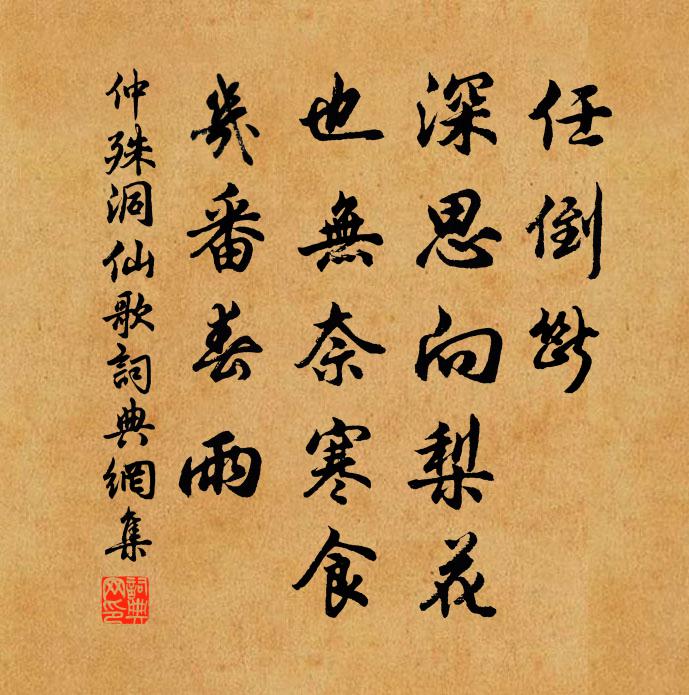 任倒斷
深思向梨花
也無奈寒食
幾番春雨
仲殊洞仙歌詞典網集
詞典網印